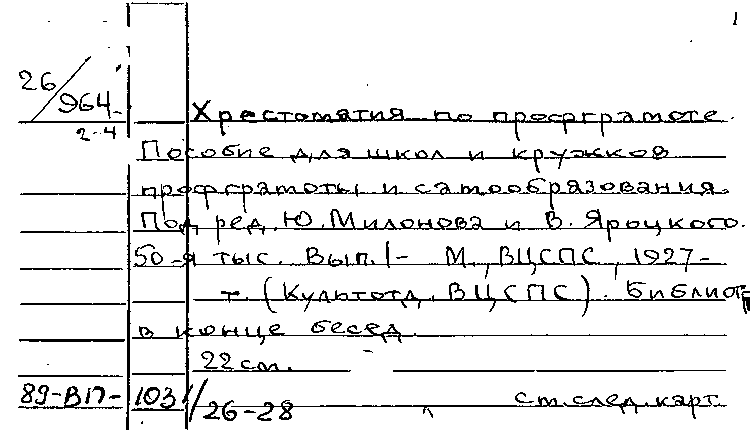 1
26/964-
2-4
Хрестоматия по профграмоте.
Пособие для школ и кружков
профграмоты и самообразования.
Под ред. Ю. Милонова и В. Яроцкого.
50-я тыс. Вып. 1- М., ВЦСПС, 1927-
т. (Культотд. ВЦСПС). Библиогр
в конце бесед.
22 см.
89-ВП-103//26-28 см. след. карт.